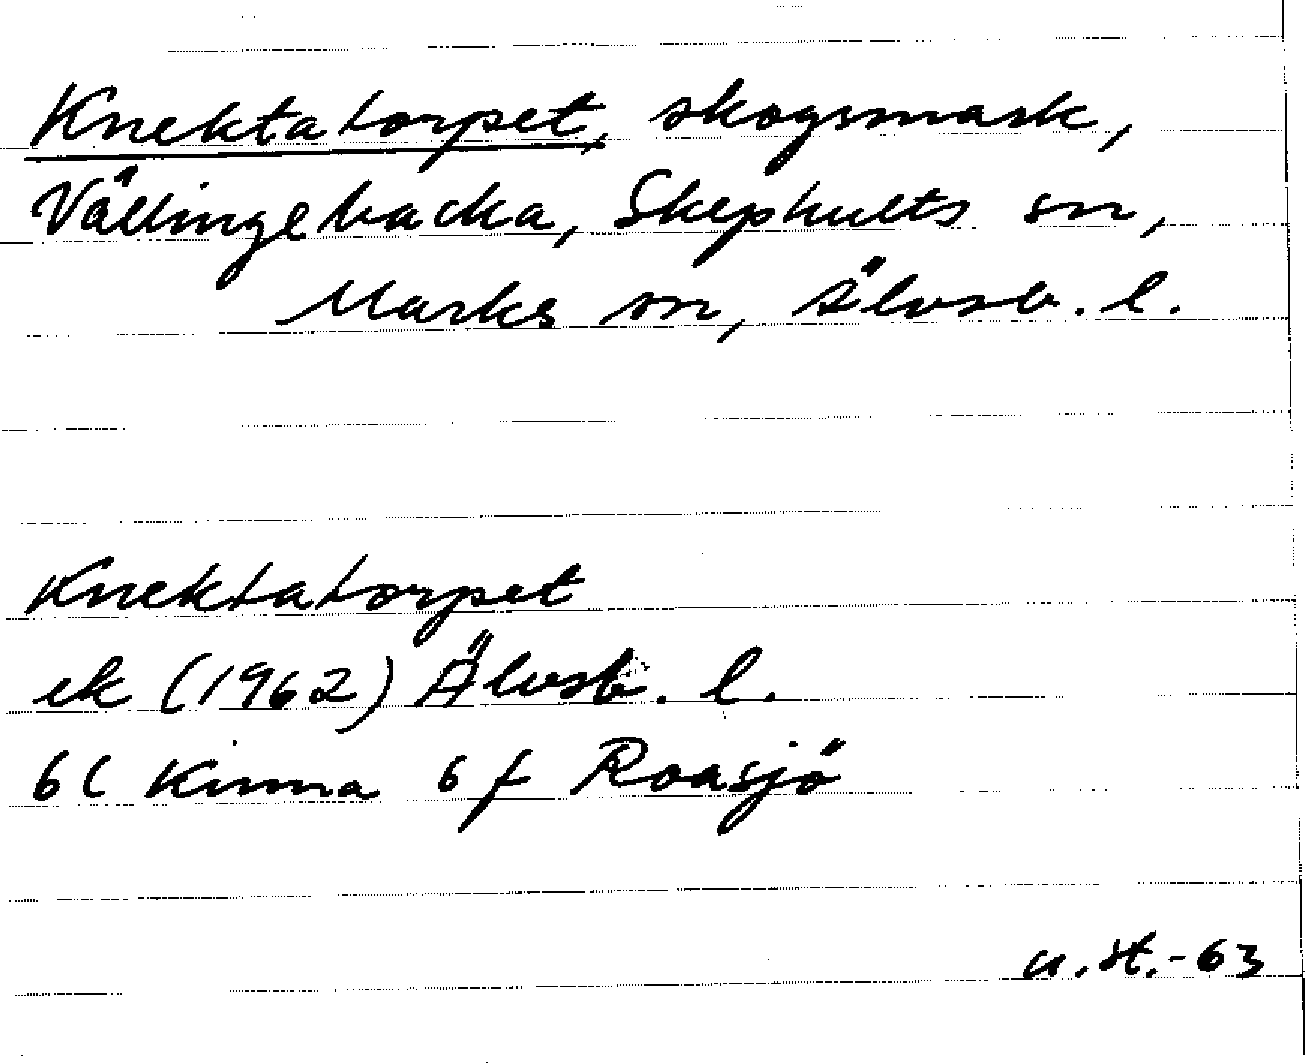 Knektatorpet, skogsmark,
Vällingebacka, Skephults sn,
Marks sn, Älvsb. l.
Knektatorpet
ek (1962) Älvsb. l.
6C Kinna 6 f Roasjö
u. st. -63